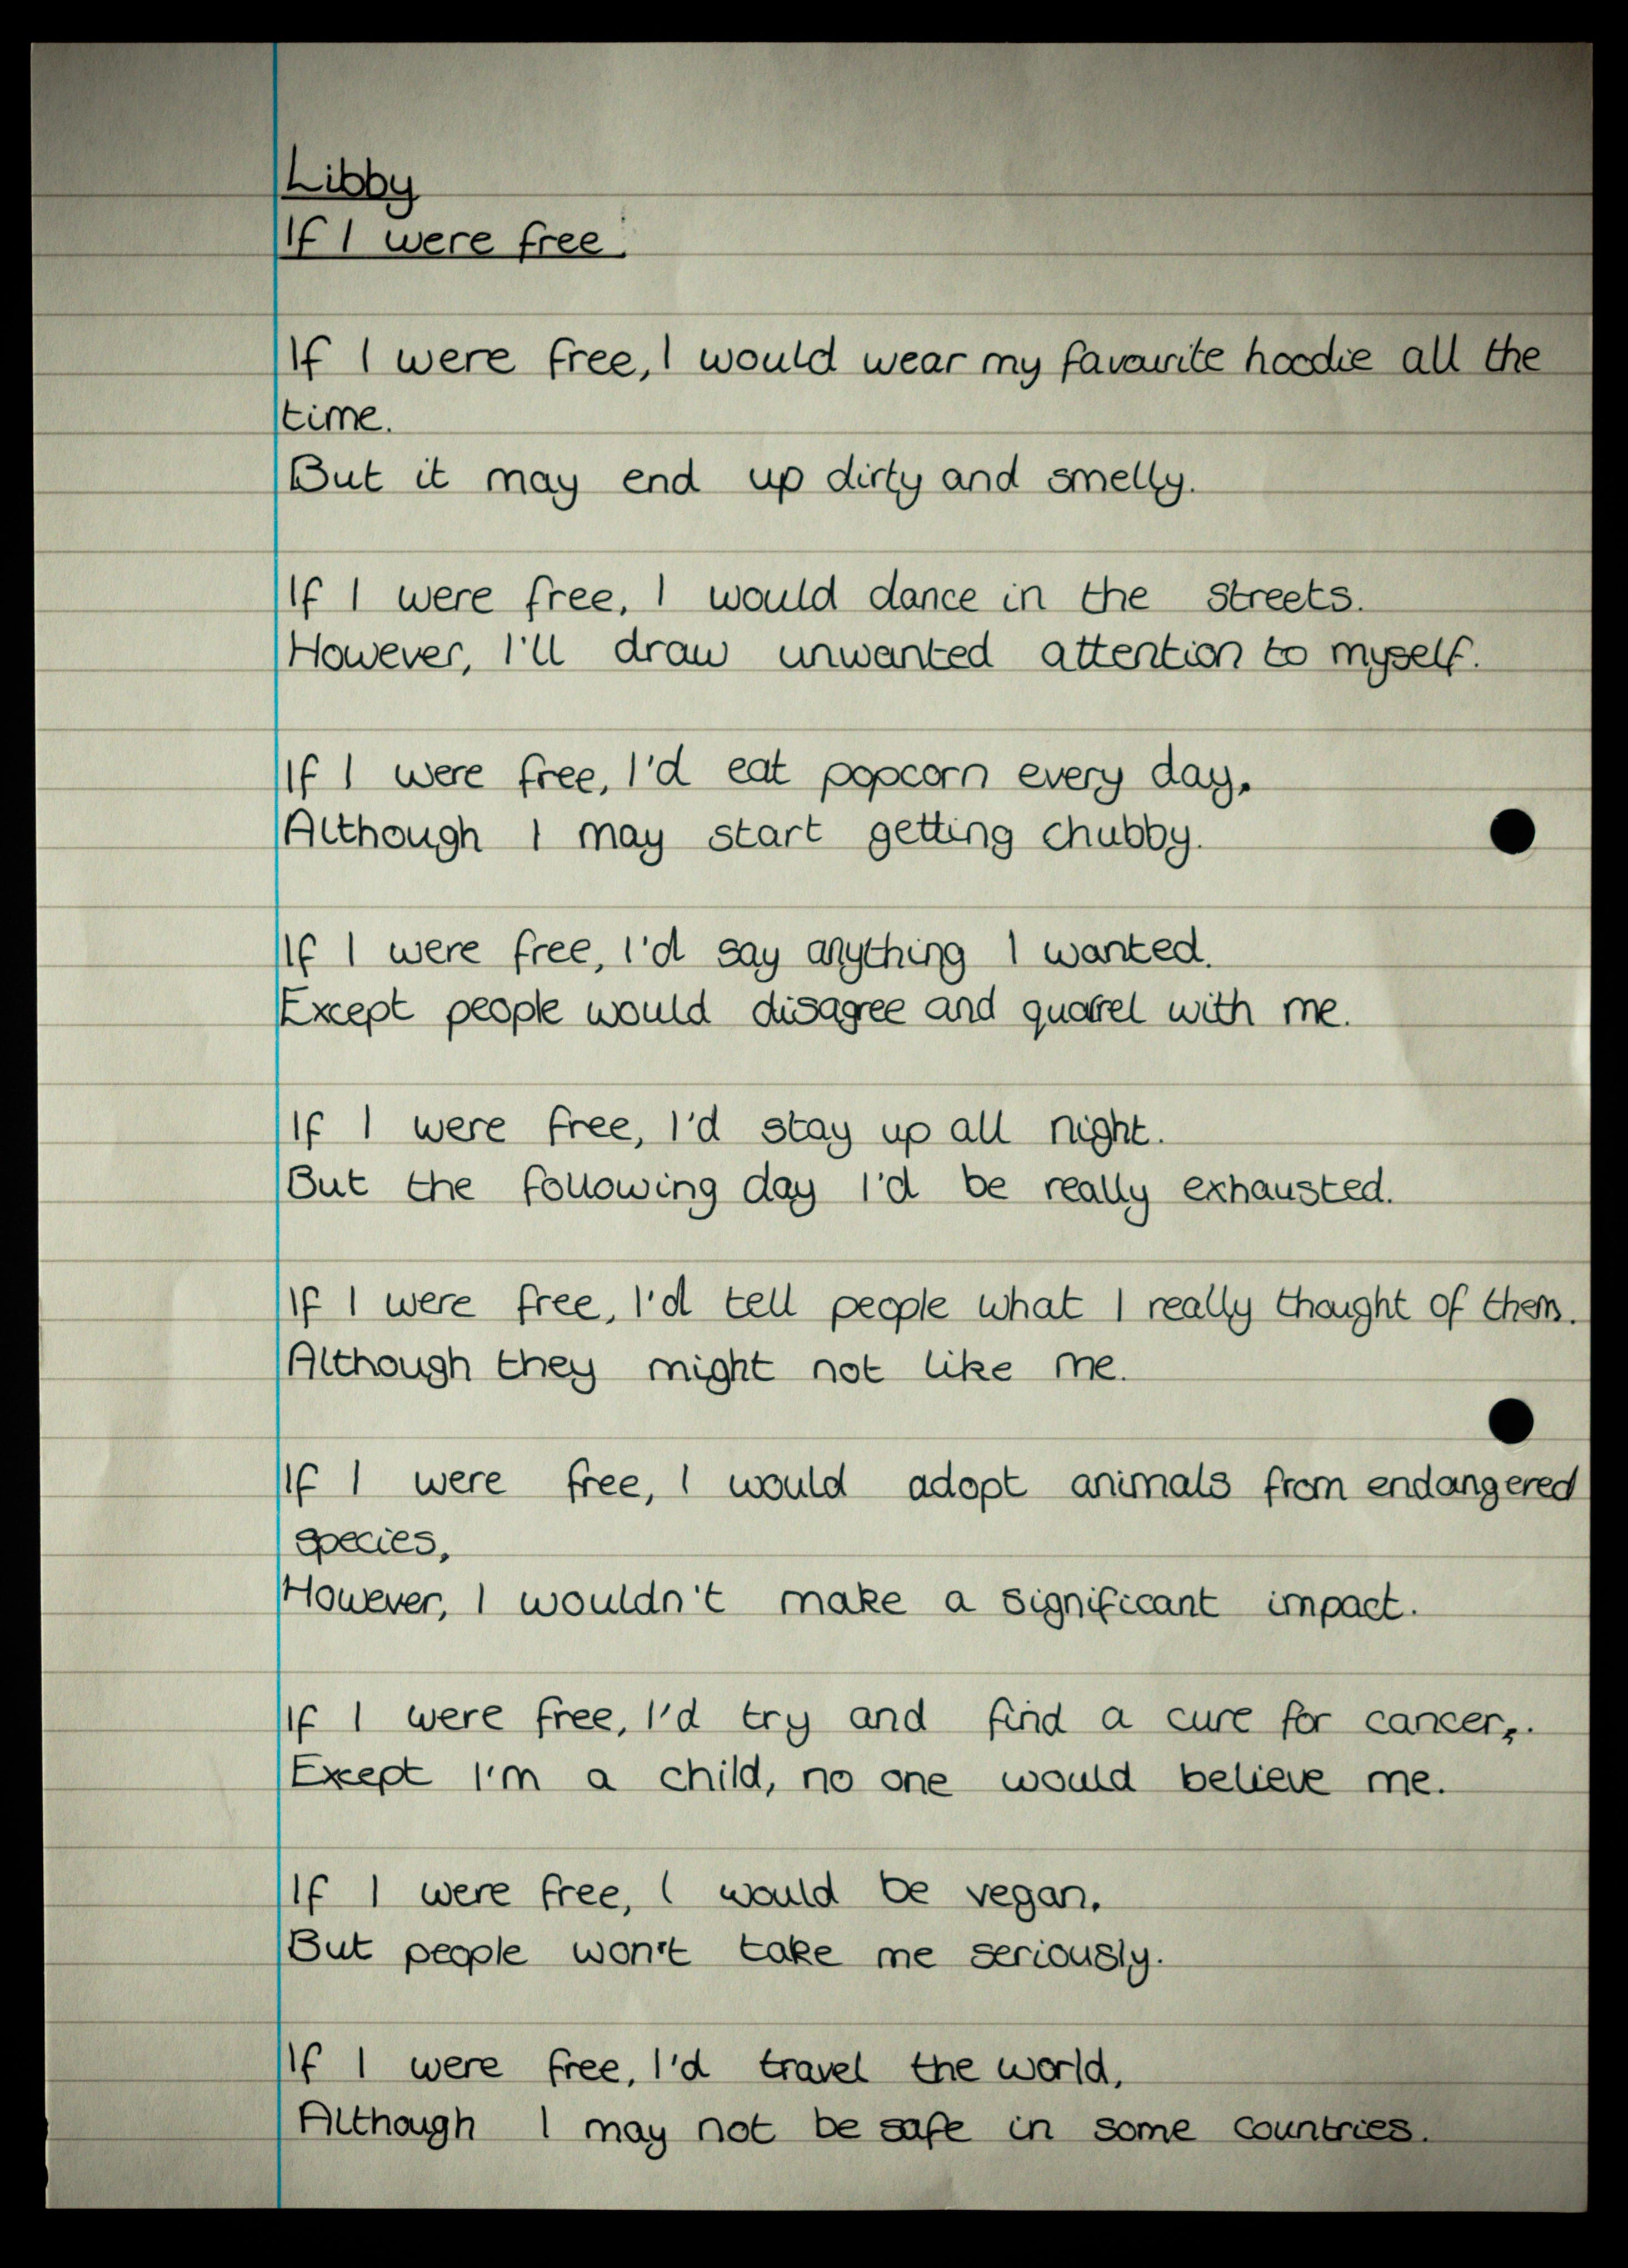 Libby
If I were free.
If I were free, I would wear my favourite hoodie all the
time.
But it may end up dirty and smelly.
If I were free, I would dance in the streets.
However, I'll draw unwanted attention to myself.
If I were free, I'd eat popcorn every day,
Although I may start getting chubby.
If I were free, I'd say anything I wanted.
Except people would disagree and quarrel with me.
If I were free, I'd stay up all night.
But the following day I'd be really exhausted.
If I were free, I'd tell people what I really thought of them.
Although they might not like me.
If I were free, I would adopt animals from endangered
species,
However, I wouldn't make a significant impact.
If I were free, I'd try and find a cure for cancer,.
Except I'm a child, no one would believe me.
If I were free, I would be vegan,
But people won't take me seriously.
If I were free, I'd travel the world,
Although I may not be safe in some countries.